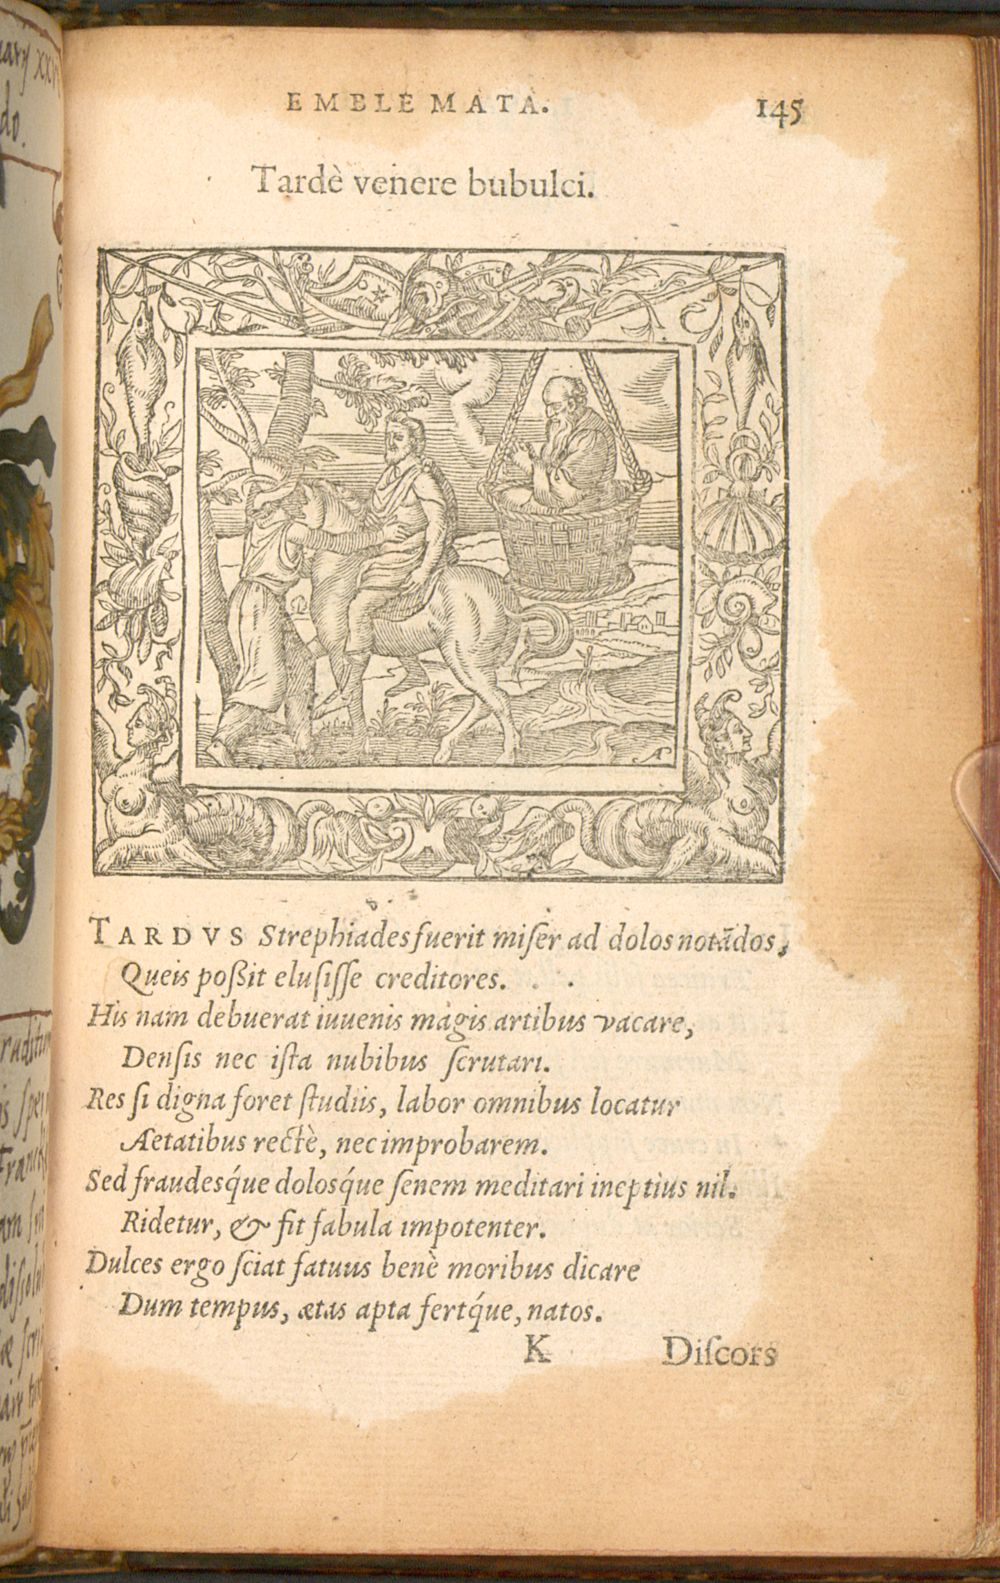 EMBLEMATA.
145
Tardè venere bubulci.
A
TARDVS Strephiades fuerit miser ad dolos notādos,
Queis poßit elusisse creditores.
His nam debuerat iuuenis magis artibus vacare,
Densis nec ista nubibus scrutari.
Res si digna foret studiis, labor omnibus locatur
Aetatibus rectè, nec improbarem.
Sed fraudesq́ue dolosq́ue senem meditari ineptius nil.
Ridetur, & fit fabula impotenter.
Dulces ergo sciat fatuus benè moribus dicare
Dum tempus, ætas apta fertq́ue, natos.
K
Discors